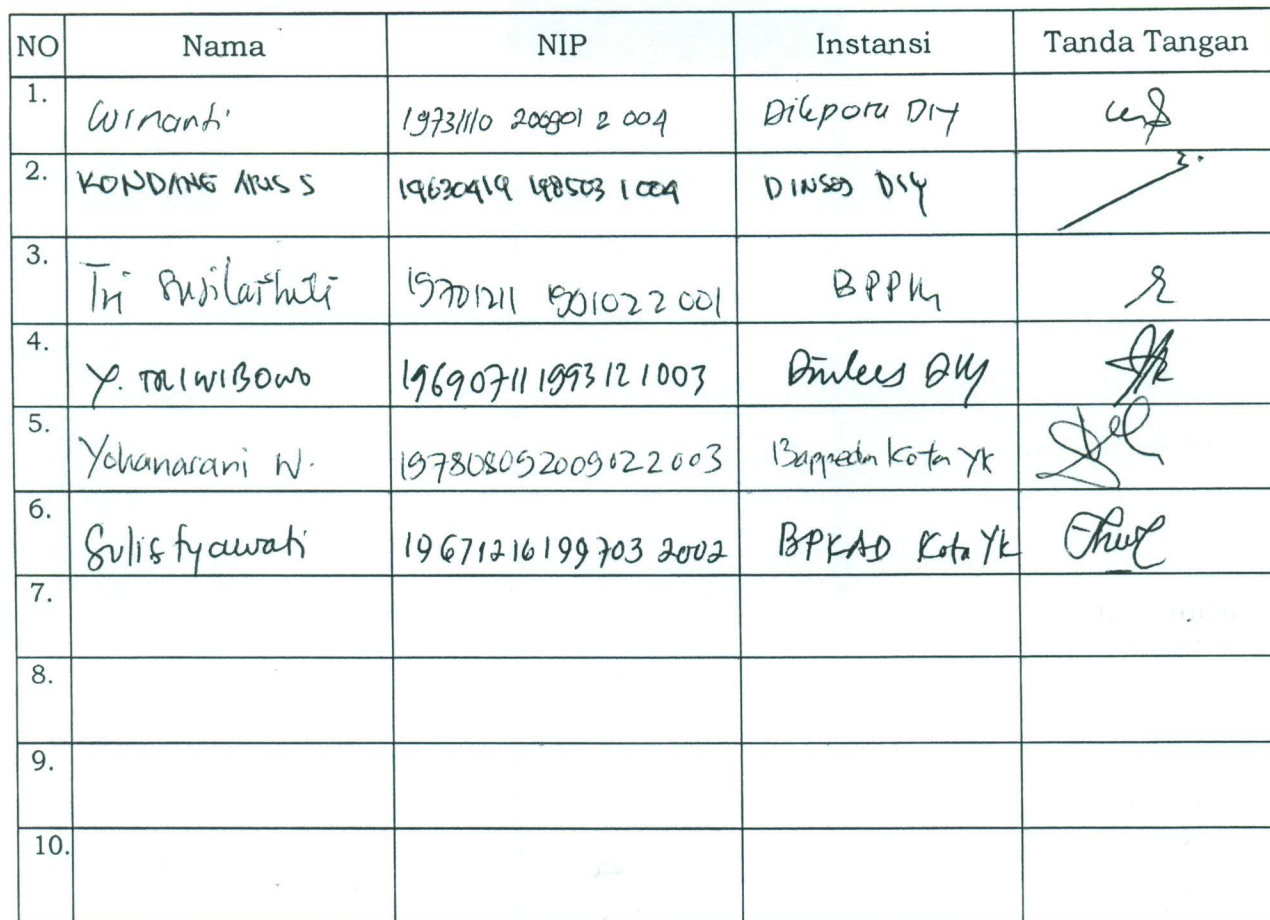 NO Nama NIP Instansi Tanda Tangan
1. Winanti 19731110 200801 2 004 Dikpora DIY
2. KONDANG ARIS S 19630419 198503 1 004 DINSOS DIY
3. Tri Susilastuti 19701211 2 001
4. Y. TRIWIBOWO 196907111993121003 Dinkes DIY
5. Yohanarani W. 197808052009022003 Bappeda Kota Yk
6. Sulistyawati 19671216199703 2002 BPKAD Kota Yk
7.
8.
9.
10.